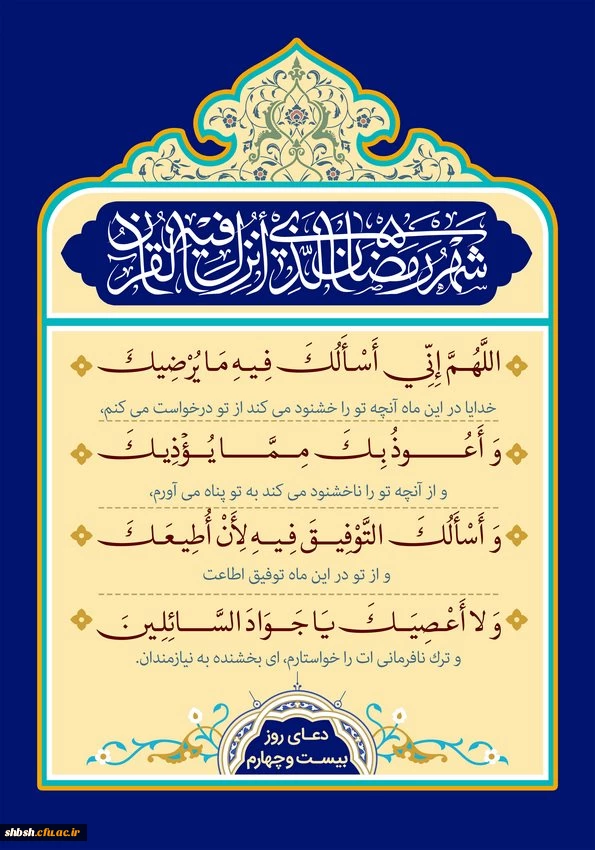 شَهْرُ رَمَضَانَ الَّذِي أُنْزِلَ فِيهِ الْقُرْآنُ
اللَّهُمَّ إِنِّي أَسْأَلُكَ فِيهِ مَا يُرْضِيكَ
خدایا در این ماه آنچه تو را خشنود می کند از تو درخواست می کنم،
وَ أَعُوذُ بِكَ مِمَّا يُؤْذِيكَ
و از آنچه تو را ناخشنود می کند به تو پناه می آورم،
وَ أَسْأَلُكَ التَّوْفِيقَ فِيهِ لِأَنْ أُطِيعَكَ
و از تو در این ماه توفیق اطاعت
وَ لا أَعْصِيَكَ يَا جَوَادَ السَّائِلِينَ
و ترك نافرمانی ات را خواستارم، ای بخشنده به نیازمندان.
دعای روز
بیست وچهارم
shbsh.cfu.ac.ir